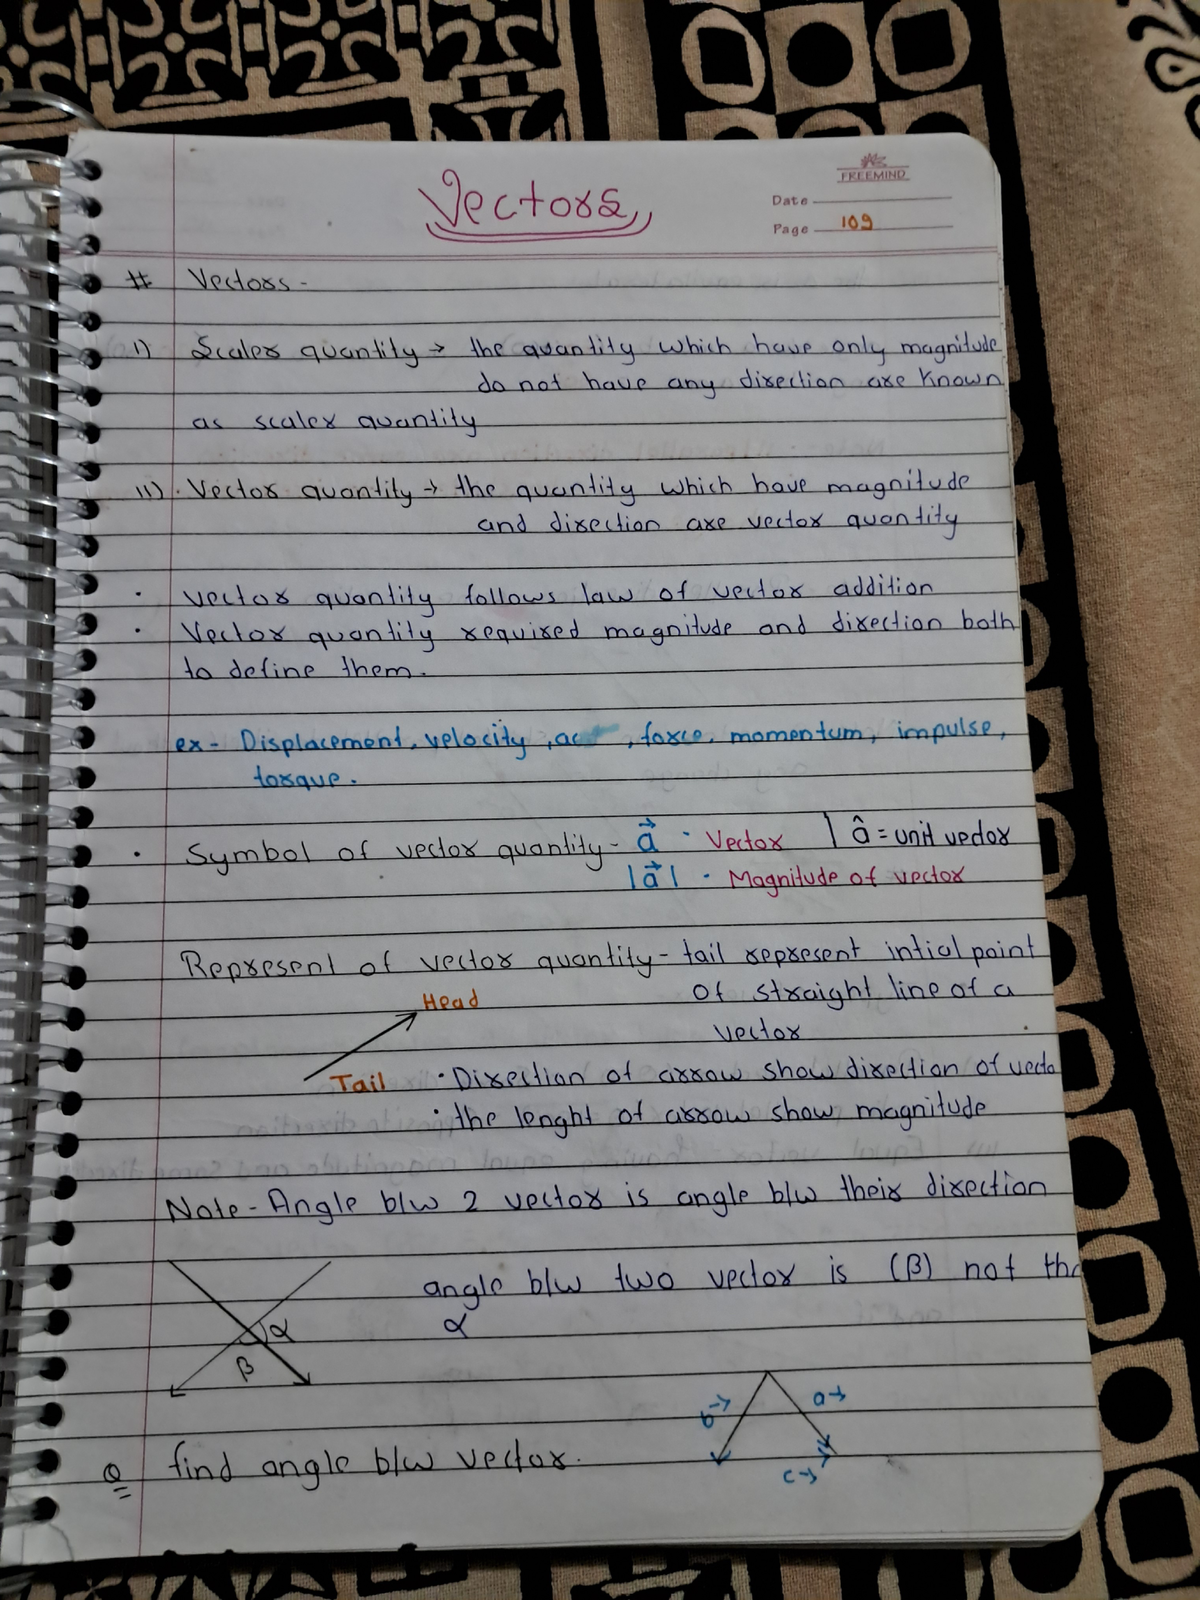 Vectors
FREEMIND
Date
Page 109
# Vectors -
i) Scaler quantity → the quantity which have only magnitude
do not have any direction are known
as scaler quantity
ii) Vector quantity → the quantity which have magnitude
and direction are vector quantity
· vector quantity follows law of vector addition
· Vector quantity required magnitude and direction both
to define them.
ex - Displacement, velocity, acc , force, momentum, impulse,
torque.
· Symbol of vector quantity - a⃗ · Vector | â = unit vector
|a⃗| · Magnitude of vector
Represent of vector quantity - tail represent intial point
of straight line of a
vector
Head
Tail
· Direction of arrow show direction of vecto
· the lenght of arrow show magnitude
Note - Angle b/w 2 vector is angle b/w their direction
angle b/w two vector is (β) not the
α
α
β
b→
a→
c→
Q find angle b/w vector.